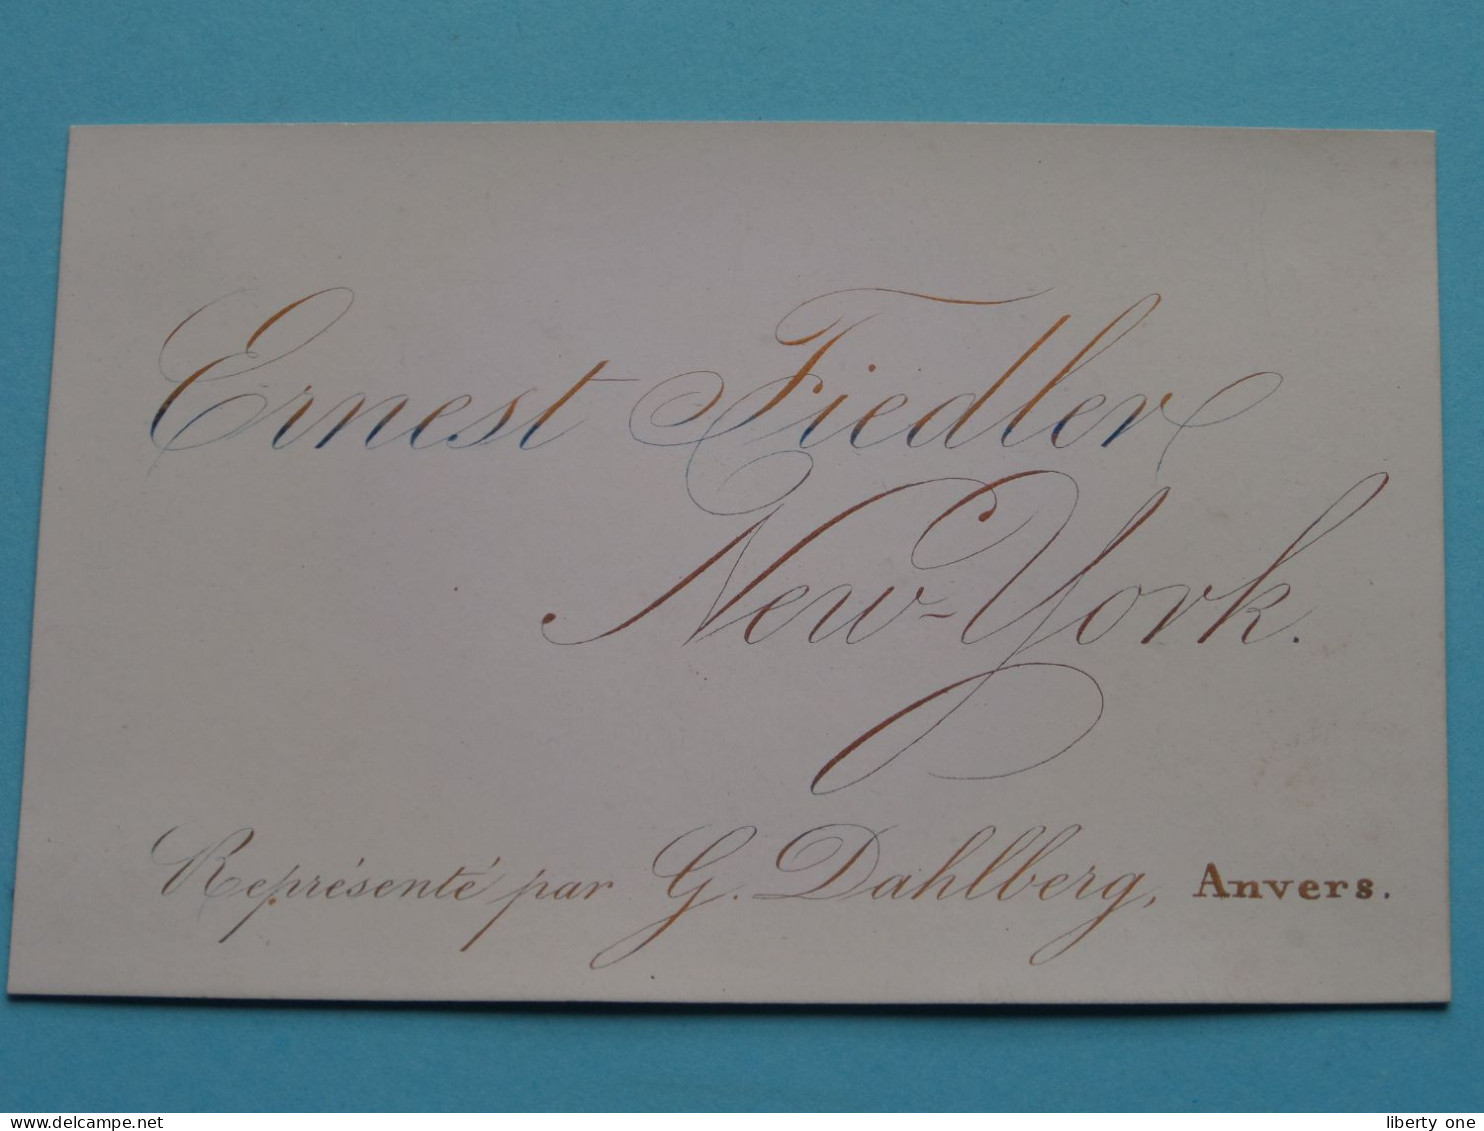 Ernest Fiedler
New-York.
Représenté par G. Dahlberg, Anvers.
delcampe.net
liberty one